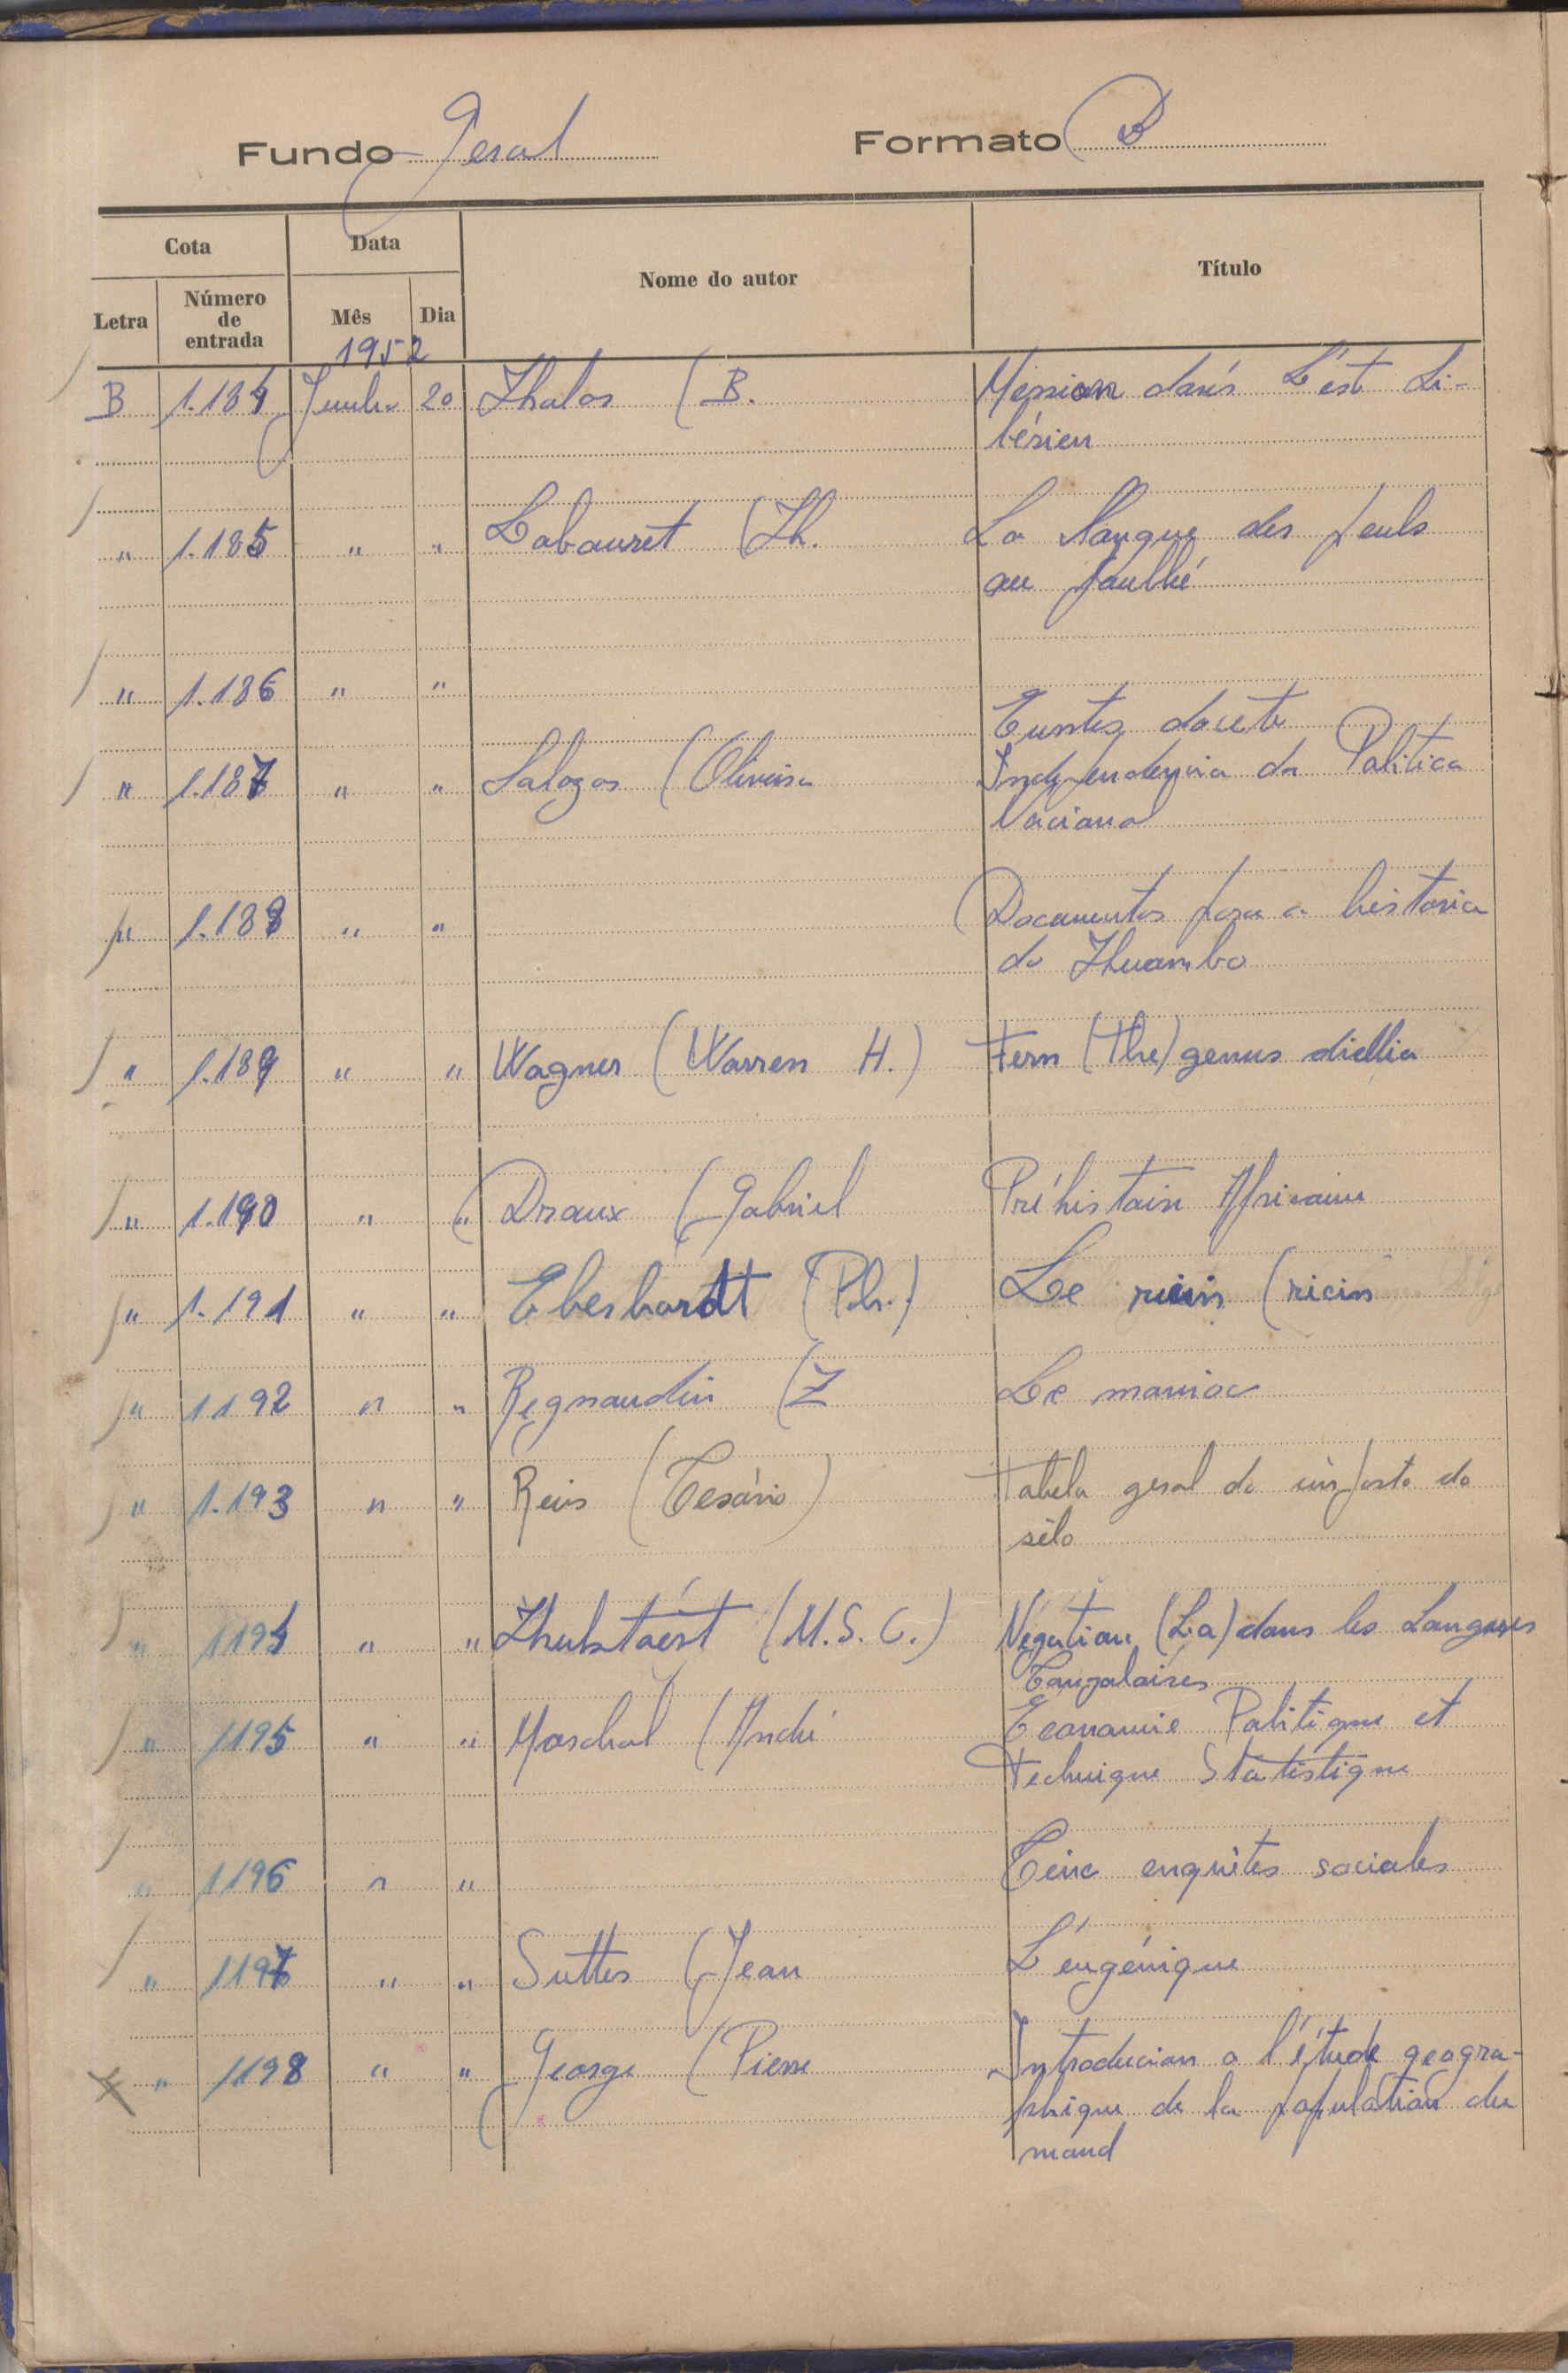 Fundo Geral Formato B
Cota Data Nome do autor Título
Letra Número de entrada Mês Dia
1952
B 1.184 Junho 20 Zhalos (B. Mission dans L'est Li-
bérien
" 1.185 " " Labouret (Zh. La Langue des peuls
ou foulbé
" 1.186 " "
Euntes docete
" 1.187 " " Salazar (Oliveira Independencia da Politica
Nacional
" 1.188 " " Documentos para a historia
do Zhuambo
" 1.189 " " Wagner (Warren H.) Fern (the) genus diellia
" 1.190 " " Draux (Gabriel Préhistoire Africaine
" 1.191 " " Eberhardt (Ph.) Le ricin (ricin
" 1192 " " Regnaudin (Z Le manioc
" 1.193 " " Reis (Cesário) Tabela geral do imposto do
sêlo
" 1194 " " Zhulstaért (M.S.C.) Négation (La) dans les Langues
Congolaises
" 1195 " " Marchal (André Economie Politique et
Technique Statistique
" 1196 " " Cinc enquêtes sociales
" 1197 " " Sutter (Jean L'eugénique
" 1198 " " George (Pierre Introducion a l'étude geogra-
phique de la population du
mond